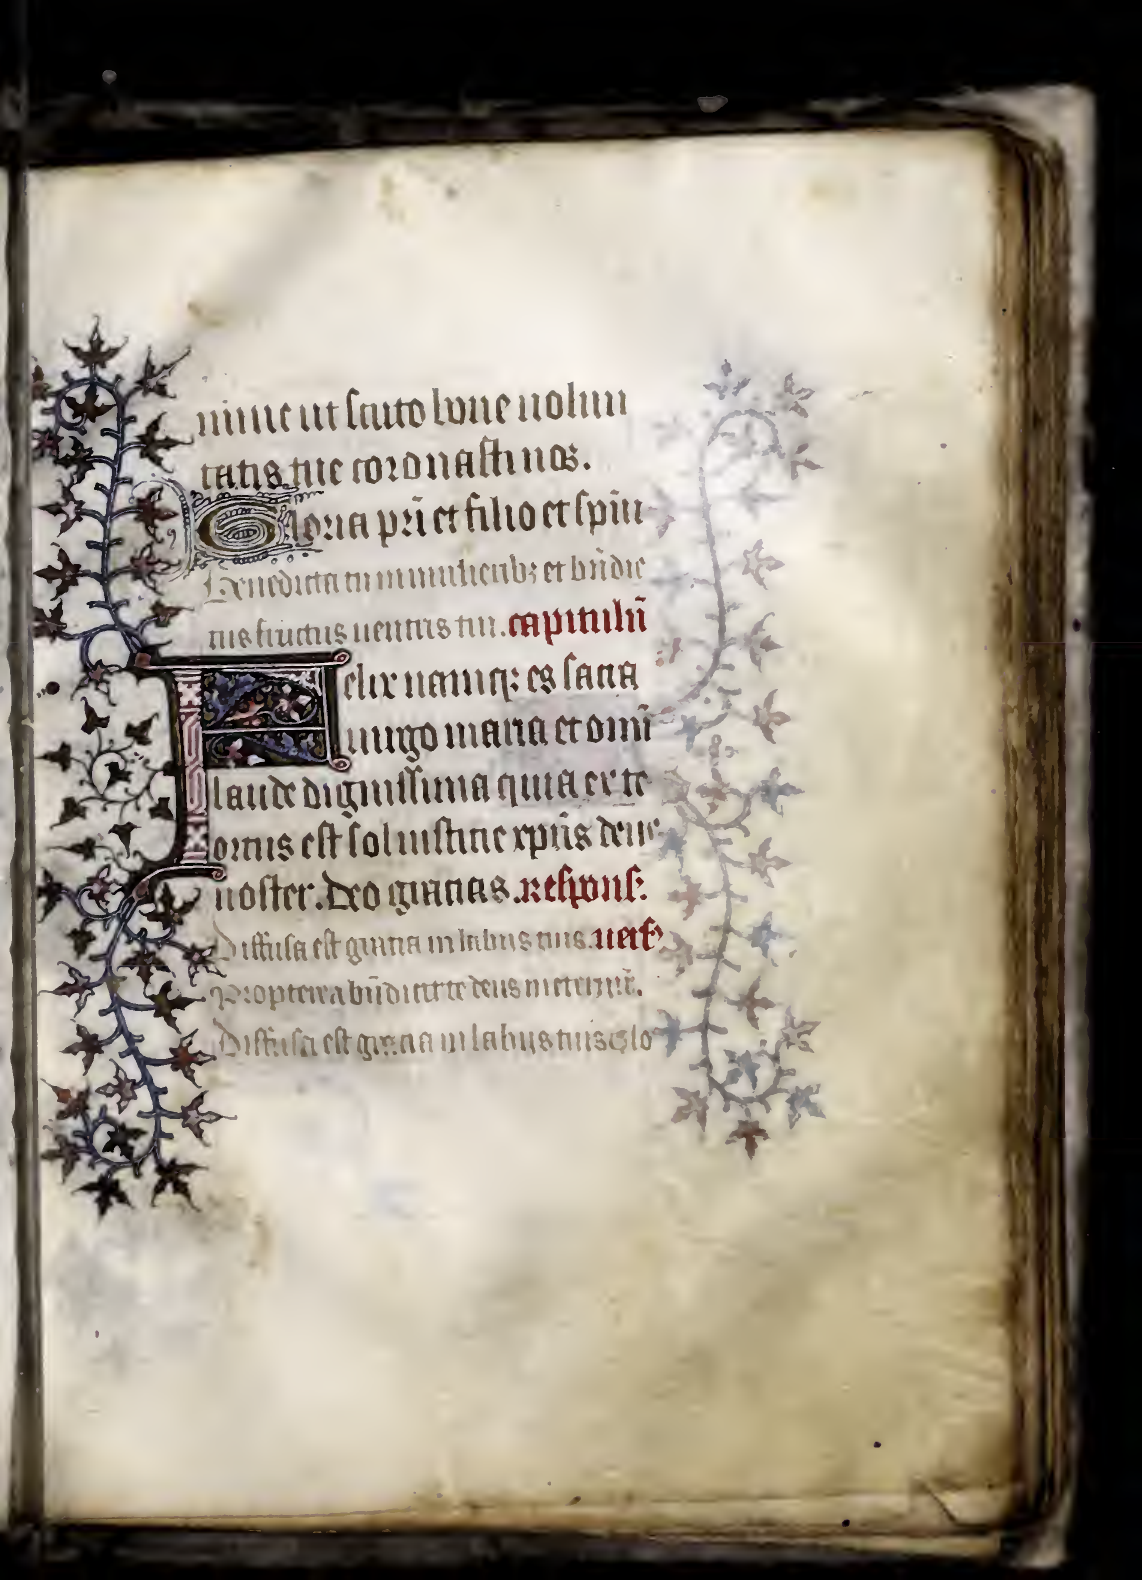 mine ut scuto bone uolun
tatis tue coronasti nos.
Gloria pr̄i et filio et sp̄iu
Benedicta tu in mulierib; et bn̄dic
tus fructus uentris tui. capitulū
Felix namq; es sacra
uirgo maria et omī
laude dignissima quia ex te
ortus est sol iusticie xpūs deus
noster. Deo gratias. Respons:
Diffusa est gratia in labiis tuis. uers
Propterea bn̄dixit te deus in eternū.
Diffusa est gratia in labiis tuis Glo